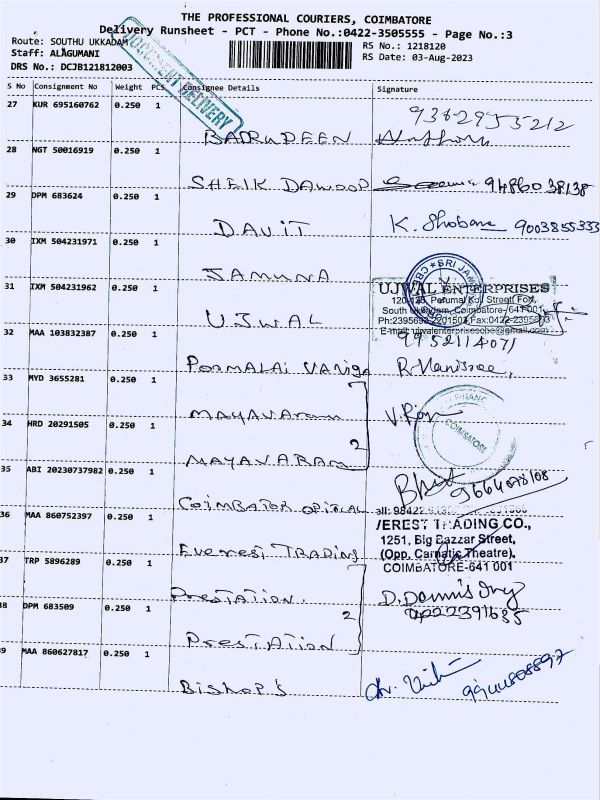 THE PROFESSIONAL COURIERS, COIMBATORE
Delivery Runsheet - PCT - Phone No.:0422-3505555 - Page No.:3
Route: SOUTHU UKKADAM
Staff: ALAGUMANI
DRS No.: DCJB121812003
RS No.: 1218120
RS Date: 03-Aug-2023
DOCUMENT DELIVERY
S No Consignment No Weight PCS Consignee Details Signature
27 KUR 695160762 0.250 1
BADRUDEEN
9362955212
28 NGT 50016919 0.250 1
SHEIK DAWOOD
9486038138
29 DPM 683624 0.250 1
DAViT
K. Shobana 9003855333
30 IXM 504231971 0.250 1
JAMUNA
31 IXM 504231962 0.250 1
UJWAL
UJWAL ENTERPRISES
Perumal Koil Street, Fort,
South Ukkadam, Coimbatore-641 001
E-mail: ujwalenterprisescbe@gmail.com
9952114071
32 MAA 103832387 0.250 1
33 MYD 3655281 0.250 1
MAYAVARam
34 HRD 20291505 0.250 1
MAYAVARAM
2
COIMBATORE
35 ABI 20230737982 0.250 1
COiMBATOR OPTICAL
36 MAA 860752397 0.250 1
Everest TRADING
VEREST TRADING CO.,
1251, Big Bazzar Street,
(Opp. Carnatic Theatre),
COIMBATORE-641 001
37 TRP 5896289 0.250 1
PresTATION.
38 DPM 683509 0.250 1
PresTATION
2
39 MAA 860627817 0.250 1
BisHop's
9944808897